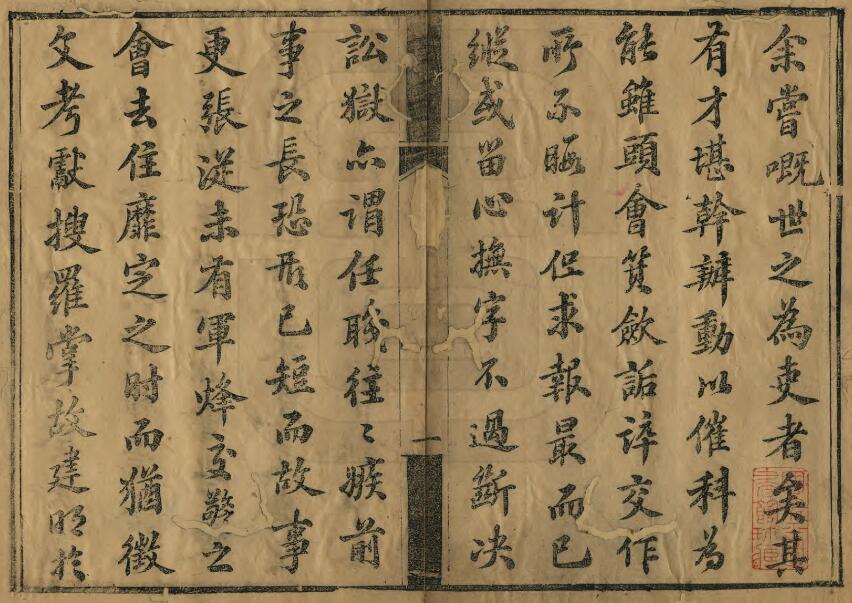 余嘗嘅世之為吏者矣其
有才堪幹辦動以催科為
能雖頭會箕斂詬誶交作
所不暇計但求報最而已
縱或留心撫字不過斷決
訟獄亦謂任職往〻嫉前
事之長恐形已短而故事
更張從未有軍烽交警之
會去住靡定之时而猶徵
文考獻搜羅掌故建明於
一